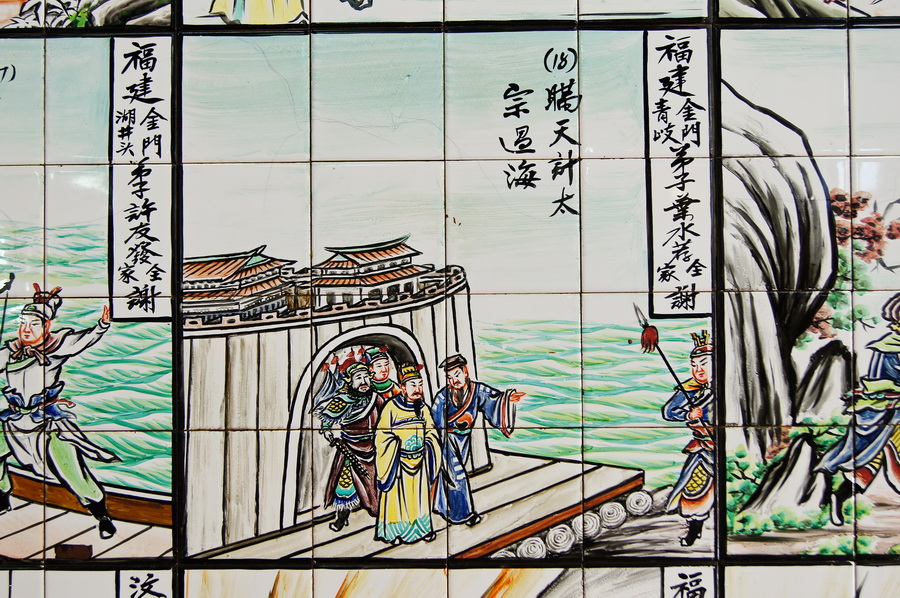 福建
金門
青岐
弟子葉水
全家
謝
(18)瞞天計太
宗過海
福建
金門
湖井头
弟子許友發
全家
謝
7)
福
汶